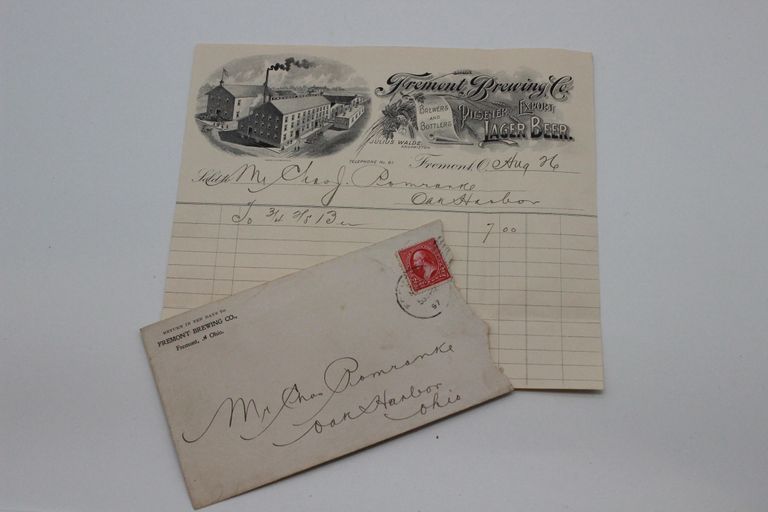 Fremont Brewing Co.
Brewers
and
Bottlers
Pilsener
Export
Lager Beer.
Julius Walde,
Proprietor.
Telephone No. 81
Fremont, O. Aug 26
Sold to Mr Chas J. Romranke
Oak Harbor
To 3/4 3/8 Beer
7 00
Return in ten days to
Fremont Brewing Co.,
Fremont, Ohio.
97
Mr Chas Romranke
Oak Harbor
Ohio